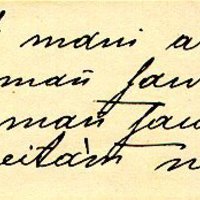 mani a
mañ jau
mañ jau
eitàm n